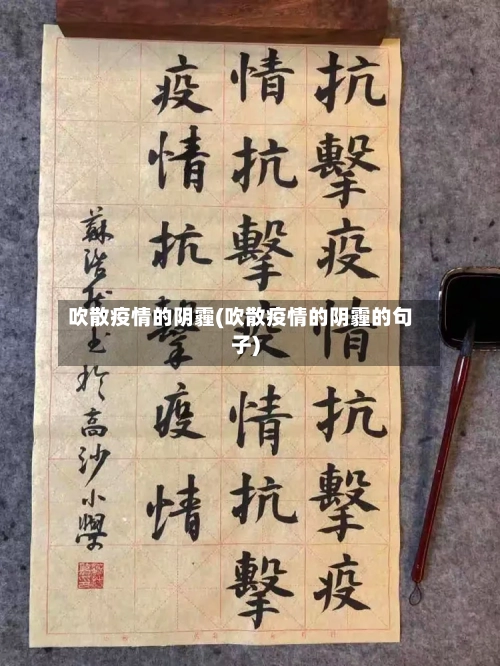 抗擊疫情抗擊疫
情抗擊疫情抗擊
疫情抗擊疫情
蘇浩 书於高沙小學
吹散疫情的阴霾(吹散疫情的阴霾的句
子)